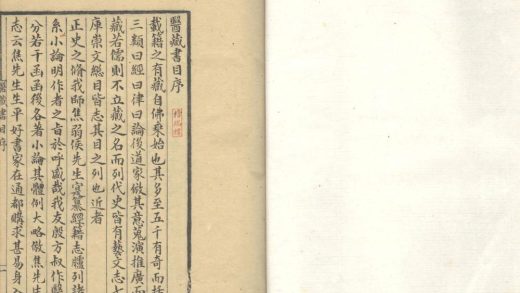 醫藏書目序
載籍之有藏自佛乘始也其多至五千有奇而括
三類曰經曰律曰論後道家倣其意蒐演推廣而
藏若儒則不立藏之名而列代史皆有藝文志七
庫崇文總目皆志其目之列也近者
正史之脩我師焦弱侯先生寔纂經籍志臚列諸
系小論明作者之旨於呼盛哉我友殷方叔作醫
分若干函函後各著小論其體例大略倣焦先生
志云焦先生生平好書家在通都購求甚易身入
醫藏書目序